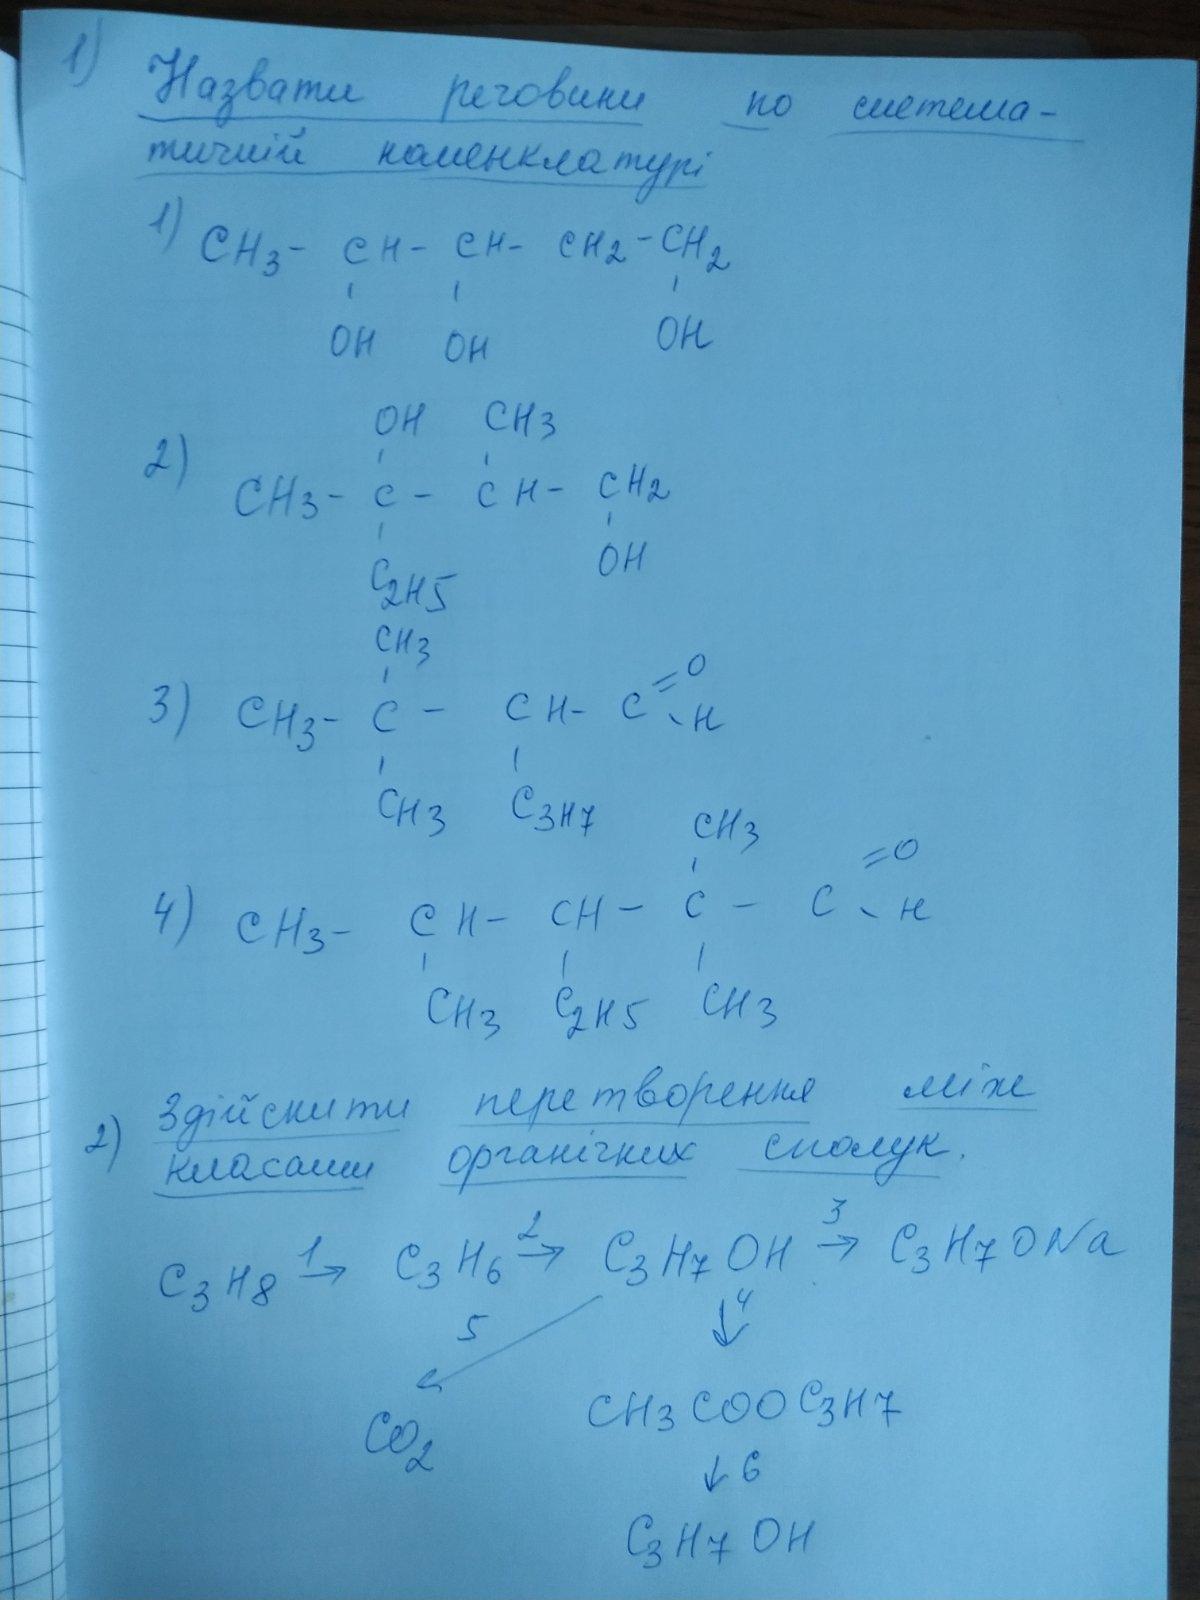 1) Назвати речовини по система-
тичній номенклатурі
1) CH3- CH- CH- CH2 -CH2
OH OH OH
OH CH3
2) CH3- C - CH- CH2
C2H5 OH
CH3
3) CH3- C - CH- C =O -H
CH3 C3H7
CH3
4) CH3- CH- CH- C - C =O -H
CH3 C2H5 CH3
2) Здійснити перетворення між
класами органічних сполук.
C3H8 1→ C3H6 2→ C3H7OH 3→ C3H7ONa
5 ↓4
CO2 CH3COOC3H7
↓6
C3H7OH